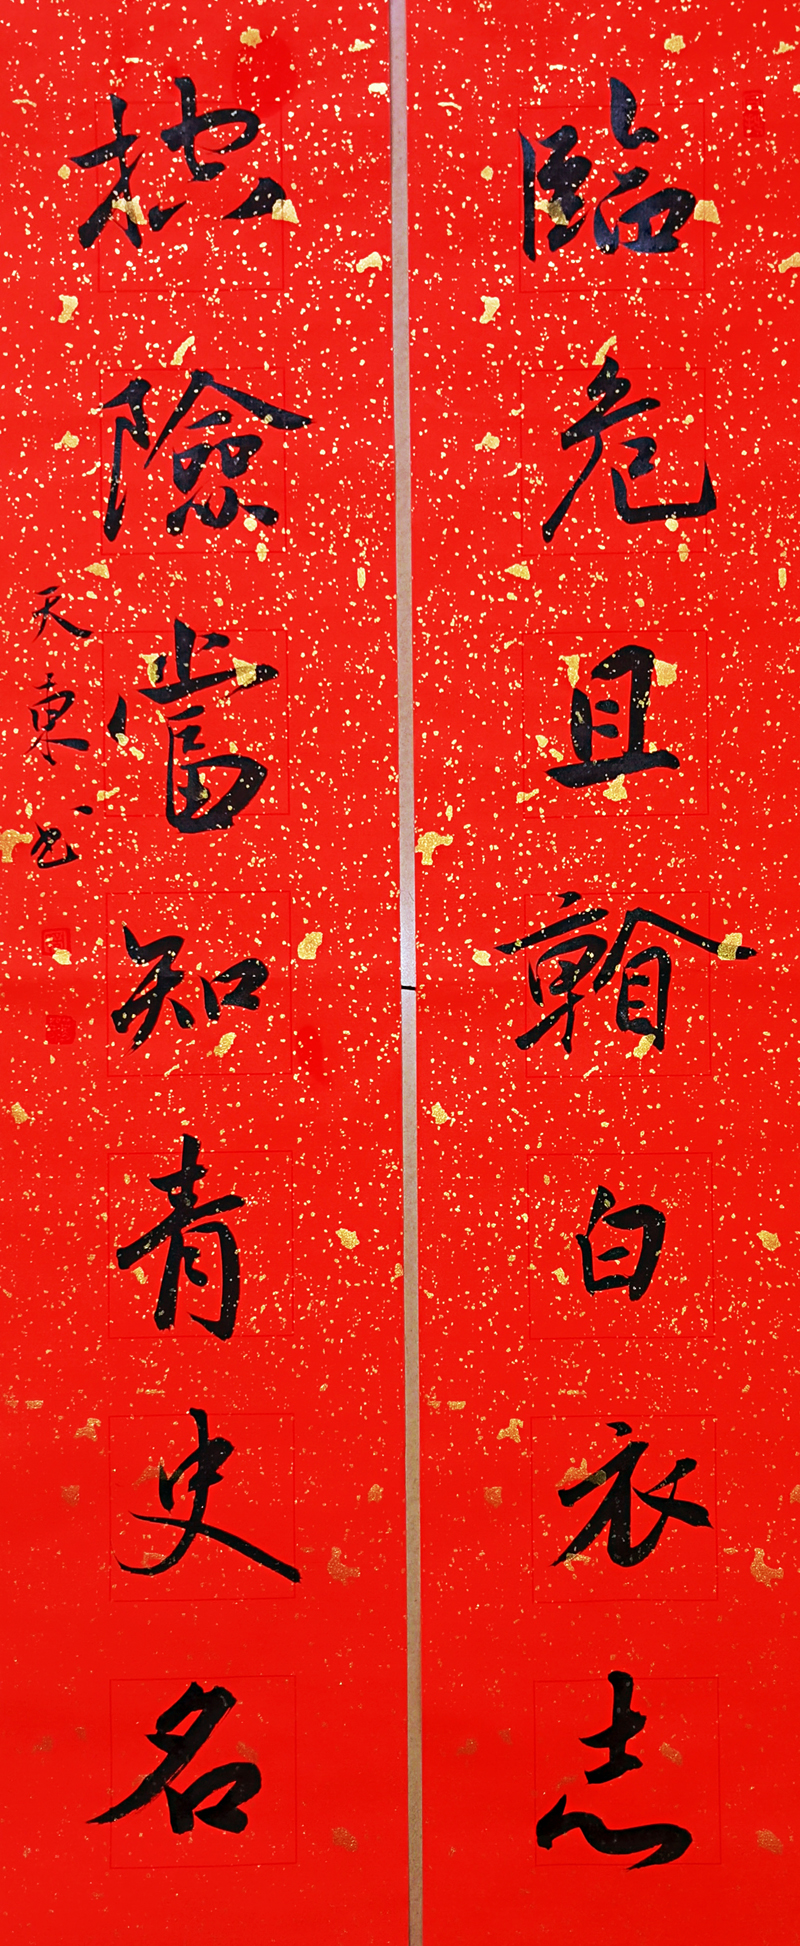 臨危且翰白衣志
控險當知青史名
天東书